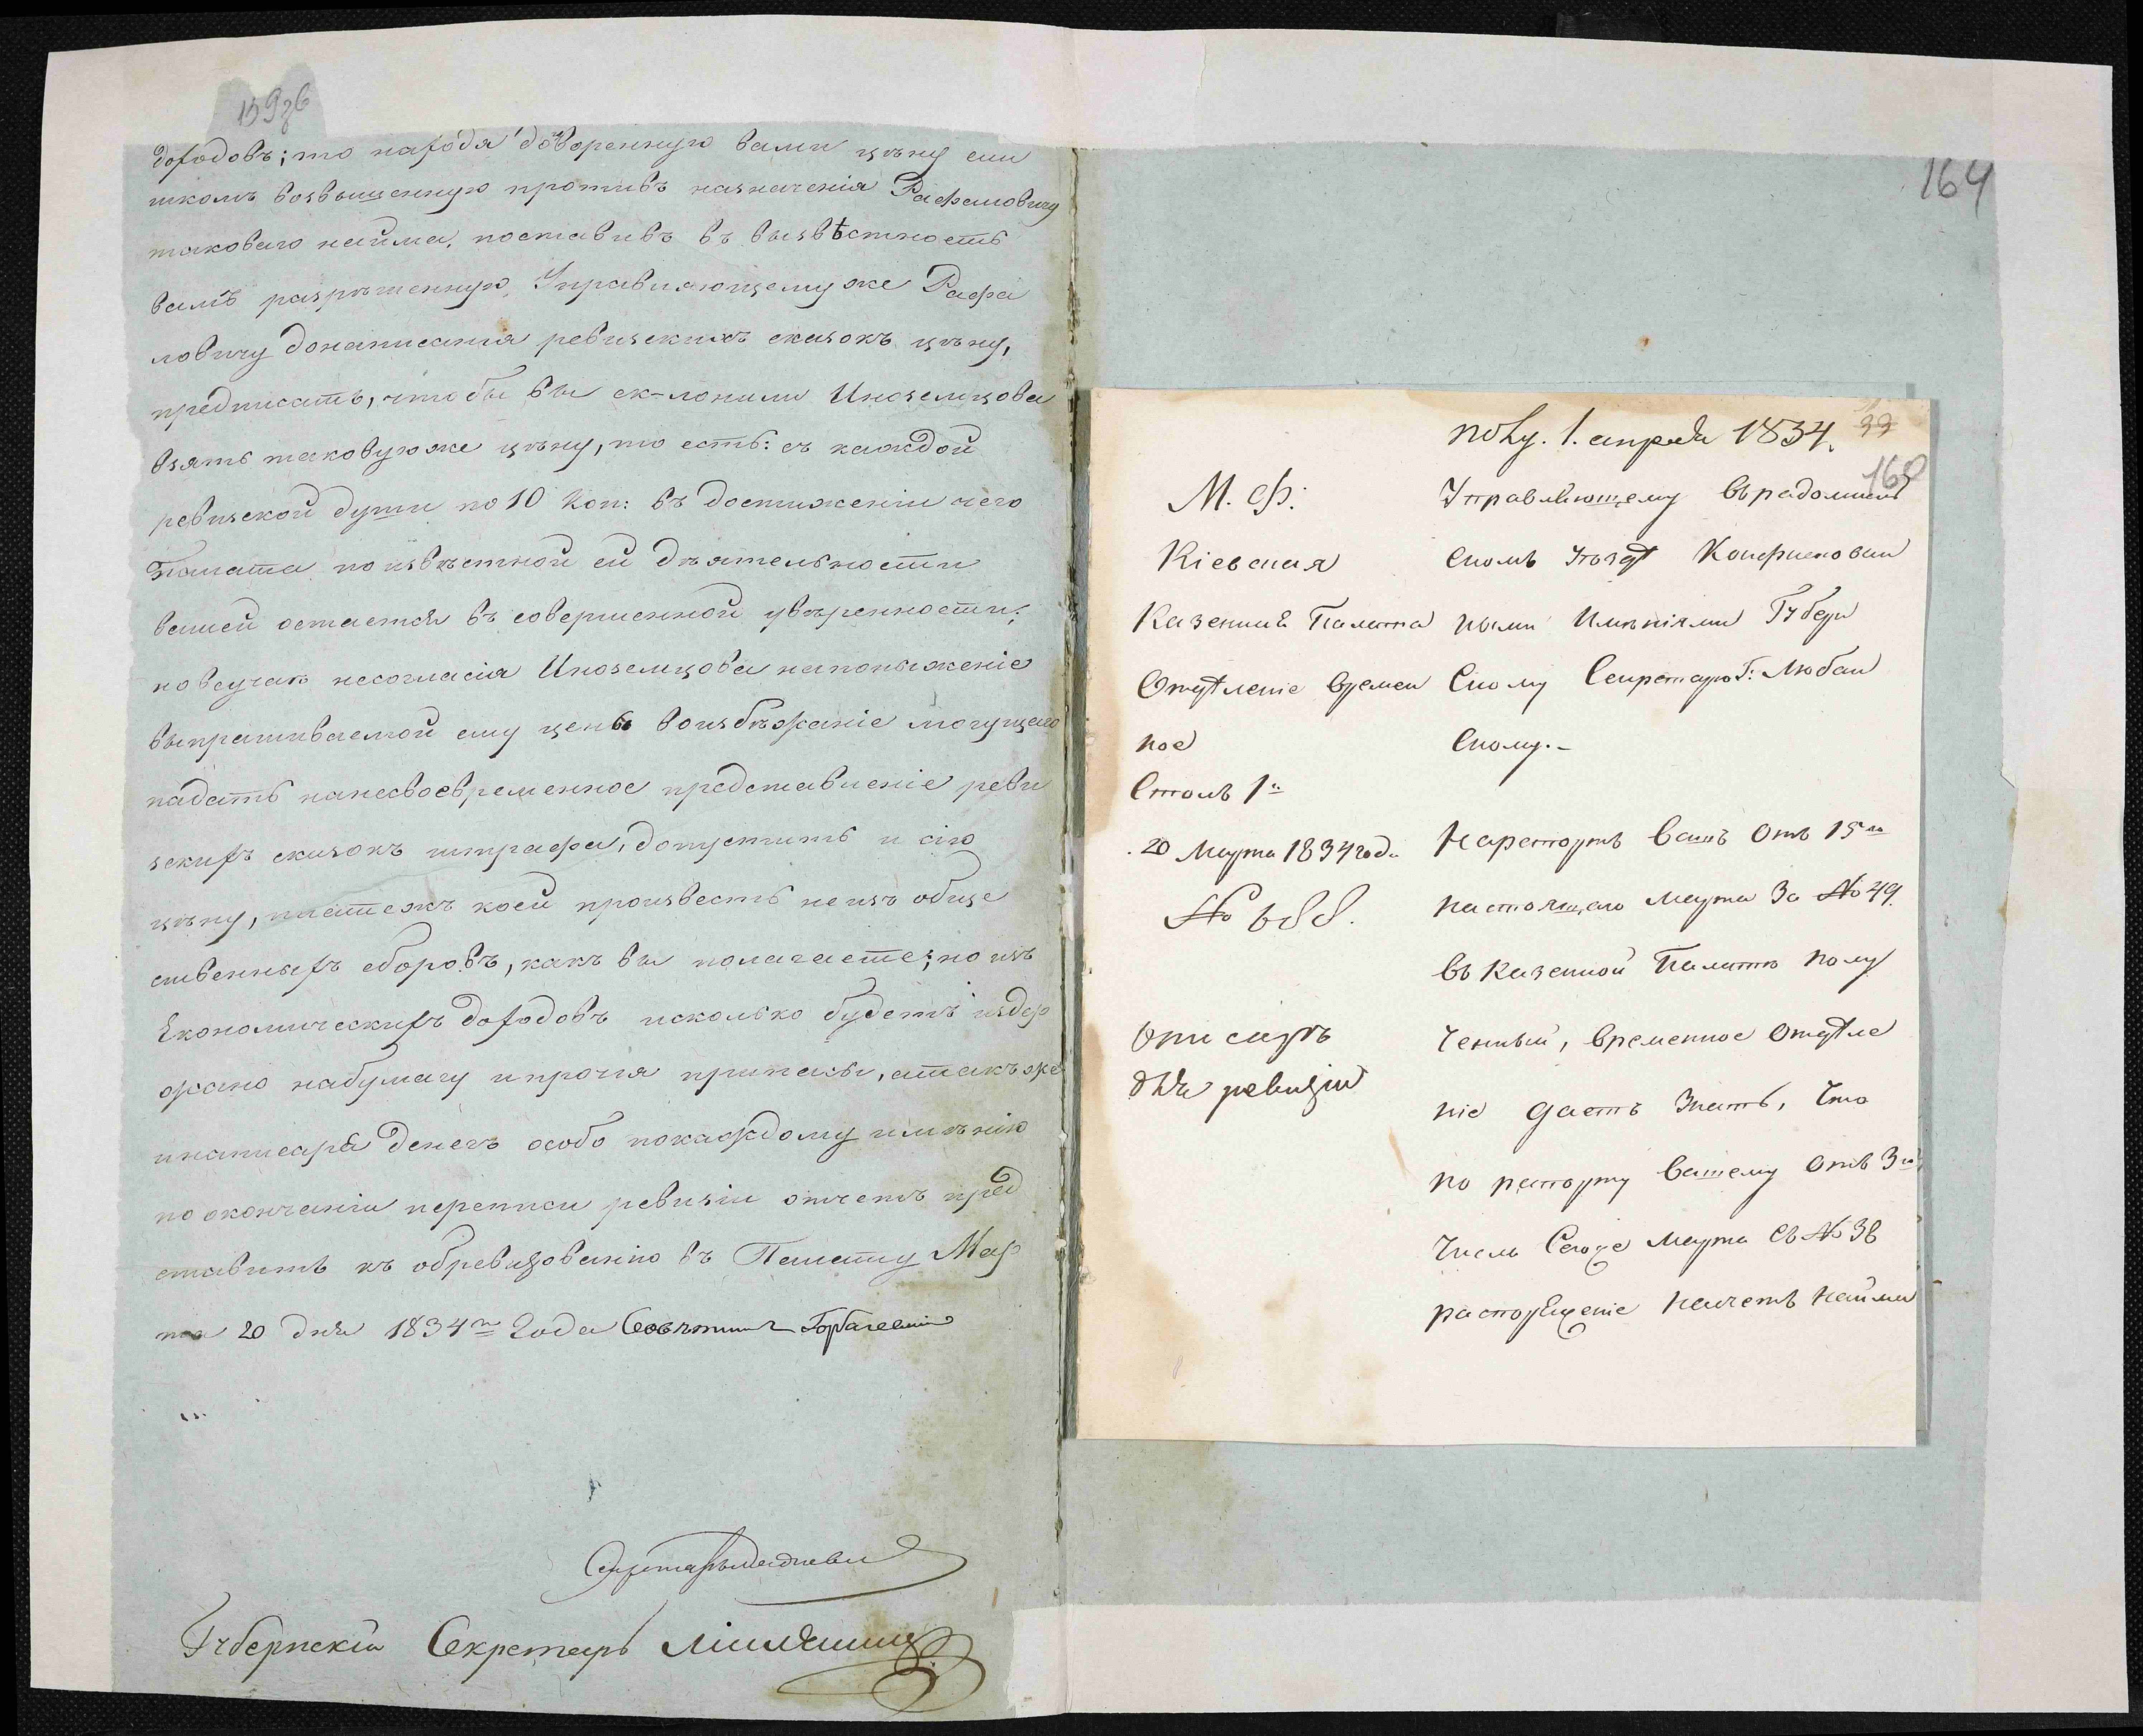 159 зв
доходовъ; то находя договоренную вами цѣну сли
шкомъ возвышенную противъ назначенія Рафаловичу
таковаго найма, поставивъ въ вызвѣстность
вамъ разрѣшенную Управляющему же Рафа
ловичу донаписанія ревизскихъ сказокъ цѣну,
предписать, чтобы вы ск-лонили Иноземцова
взять таковую же цѣну, то есть: съ каждой
ревизской души по 10 коп: въ достиженіи чего
Палата по извѣстной ей дѣятельности
вашей остается въ совершенной увѣренности;
но вслучаѣ несогласія Иноземцова напоныженіе
выпрашиваемой ему цены воизбѣжаніе могущаго
падать нанесвоевременное представленіе реви
зскихъ сказокъ штрафа, допустить и сію
цѣну, платежъ коей произвесть неизъ обще
ственныхъ сборовъ, какъ вы полагаете; но изъ
Економическихъ доходовъ исколько будетъ издер
жано набумагу и прочія припасы, атакъ же
инаписаря денегъ особо покаждому имѣнію
по окончаніи переписи ревизіи отчетъ пред
ставить къ обревизованію въ Палату Мар
та 20 дня 1834го года Совѣтникъ Горбачевскій
Секретарь
Губернскій Секретарь
164
полу. 1. апреля 1834.
99
160
М. Ф.
Кіевская
Казенная Палата
Отдѣленіе времен
ное
Столъ 1й
20 Марта 1834 года
№ 688.
Описаръ
для ревизіи
Управляющему въ радомысль
скомъ уѣздѣ Конфискован
ными Имѣніями Губерн
скому Секретарю Г: Любан
скому.-
На рапортъ вашъ отъ 15го
настоящаго Марта за № 49.
въ Казенной Палатѣ полу
ченный, временное отдѣле
ніе даетъ знать, что
по рапорту вашему отъ 3го
числа Сегоже Марта съ № 38
распоряженіе насчетъ найма